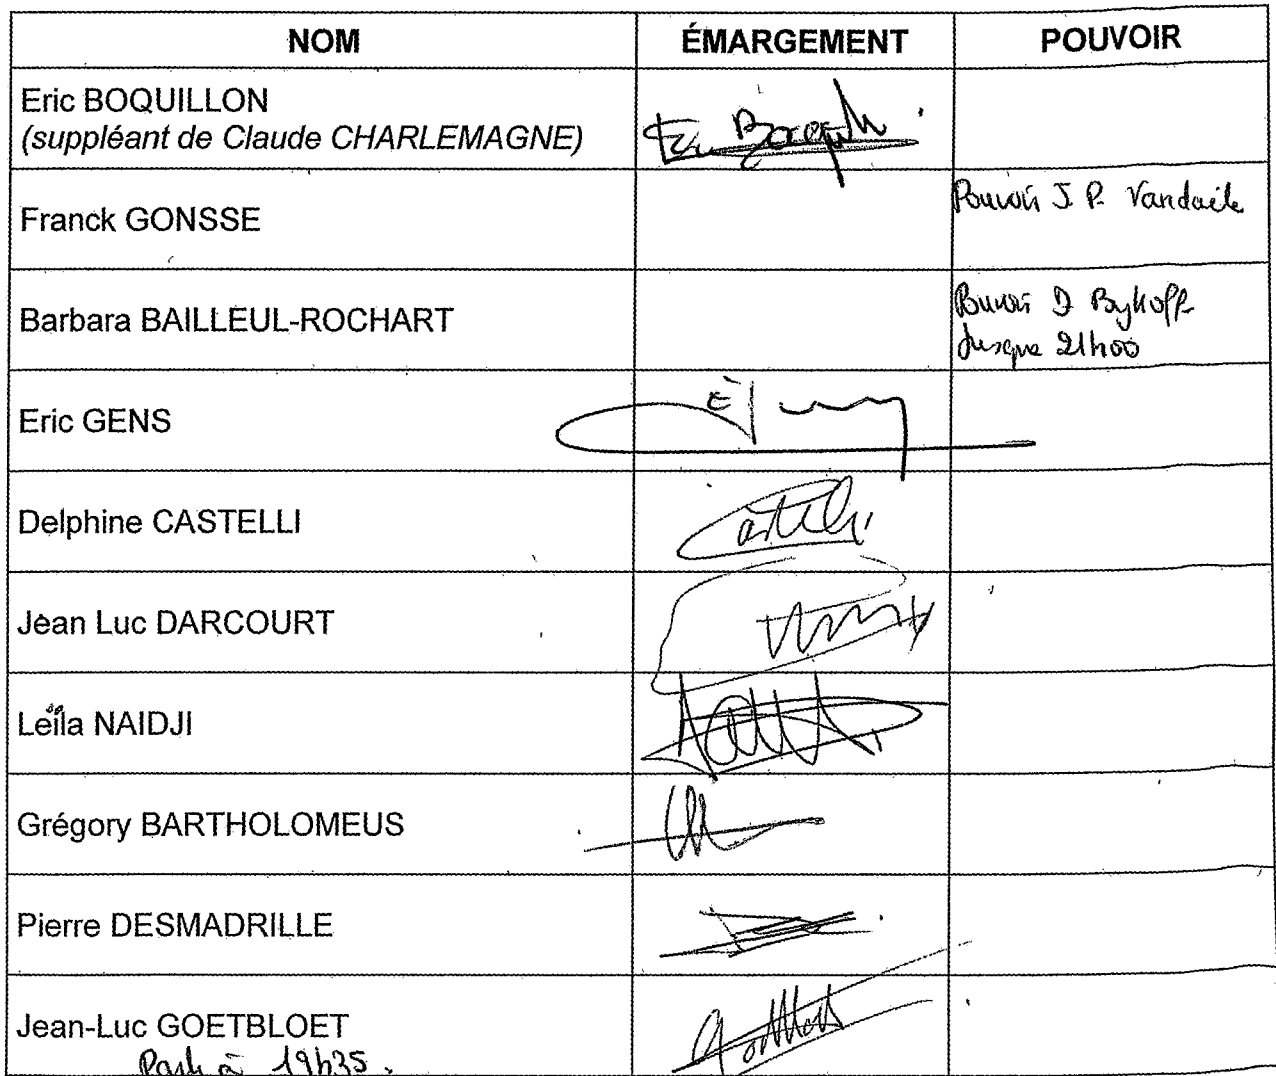 NOM ÉMARGEMENT POUVOIR
Eric BOQUILLON
(suppléant de Claude CHARLEMAGNE)
Franck GONSSE Pouvoir J. P. Vandaele
Barbara BAILLEUL-ROCHART Pouvoir D Bykoff
Jusque 21h00
Eric GENS
Delphine CASTELLI Castelli
Jean Luc DARCOURT
Leïla NAIDJI
Grégory BARTHOLOMEUS
Pierre DESMADRILLE
Jean-Luc GOETBLOET
Parti à 19h35.